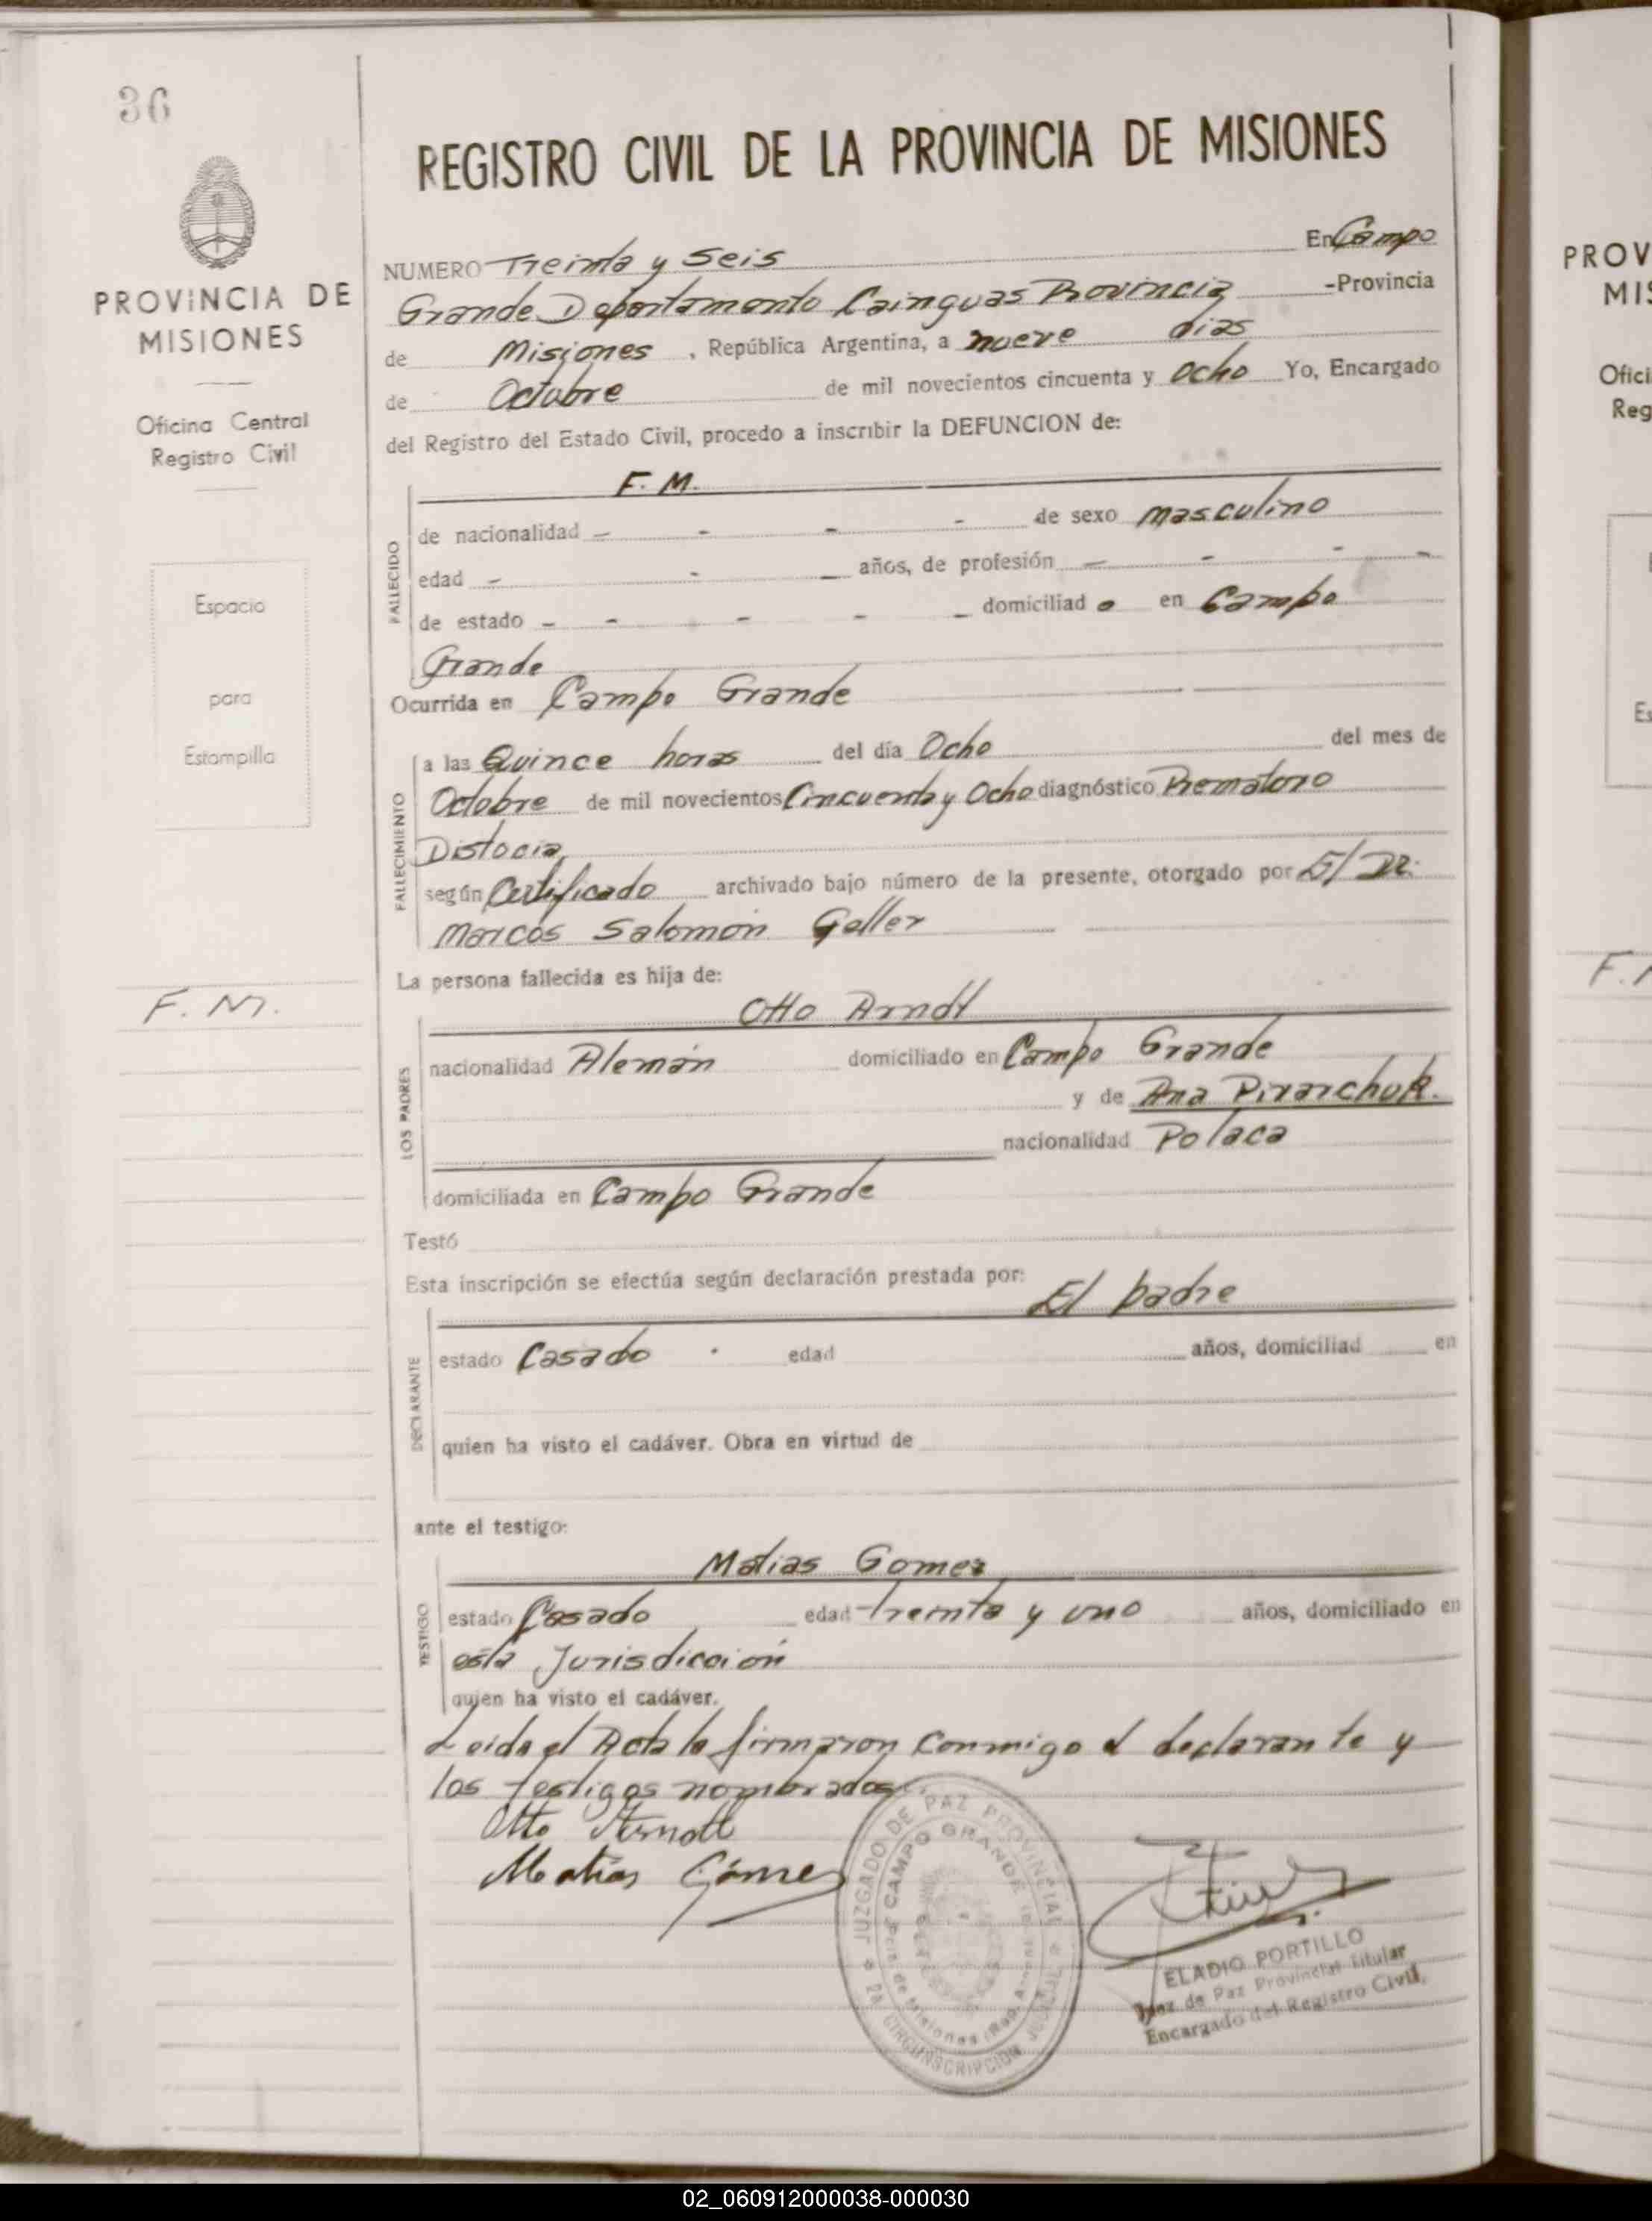 36
REGISTRO CIVIL DE LA PROVINCIA DE MISIONES
PROVINCIA DE
MISIONES
Oficina Central
Registro Civil
Espacio
para
Estampilla
F. M.
NUMERO Treinta y Seis En Campo
Grande Departamento Cainguas Provincia -Provincia
de Misiones, República Argentina, a nueve dias
de Octubre de mil novecientos cincuenta y Ocho Yo, Encargado
del Registro del Estado Civil, procedo a inscribir la DEFUNCION de:
F. M.
FALLECIDO
de nacionalidad - - - - de sexo masculino
edad - - - años, de profesión - - - -
de estado - - - - - domiciliado en Campo
Grande
Ocurrida en Campo Grande
FALLECIMIENTO
a las Quince horas del día Ocho del mes de
Octubre de mil novecientos Cincuenta y Ocho diagnóstico Prematuro
Distocia,
según Certificado archivado bajo número de la presente, otorgado por El Dr.
Marcos Salomón Geller
La persona fallecida es hija de:
Otto Arndt
LOS PADRES
nacionalidad Alemán domiciliado en Campo Grande
y de Ana Pivarchuk.
nacionalidad Polaca
domiciliada en Campo Grande
Testó
Esta inscripción se efectúa según declaración prestada por:
El padre
DECLARANTE
estado Casado edad años, domiciliad en
quien ha visto el cadáver. Obra en virtud de
ante el testigo:
Matias Gomez
TESTIGO
estado Casado edad treinta y uno años, domiciliado en
esta Jurisdicción
quien ha visto el cadáver.
Leida el Acta la firmaron conmigo el declarante y
los testigos nombrados.
Otto Arndt
Matías Gómez
JUZGADO DE PAZ PROVINCIAL
CAMPO GRANDE
de Misiones (Rep.
2a CIRCUNSCRIPCION JUDICIAL
ELADIO PORTILLO
Juez de Paz Provincial Titular
Encargado del Registro Civil,
PROV
MIS
Ofici
Reg
Es
F. M
02_060912000038-000030